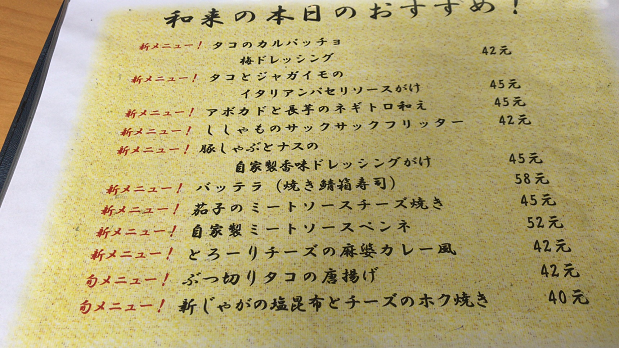 和来の本日のおすすめ！
新メニュー！ タコのカルパッチョ
梅ドレッシング 42元
新メニュー！ タコとジャガイモの
イタリアンバセリソースがけ 45元
新メニュー！ アボカドと長芋のネギトロ和え 45元
新メニュー！ ししゃものサックサックフリッター 42元
新メニュー！ 豚しゃぶとナスの
自家製香味ドレッシングがけ 45元
新メニュー！ バッテラ（焼き鯖箱寿司） 58元
新メニュー！ 茄子のミートソースチーズ焼き 45元
新メニュー！ 自家製ミートソースペンネ 52元
新メニュー！ とろーりチーズの麻婆カレー風 42元
旬メニュー！ ぶつ切りタコの唐揚げ 42元
旬メニュー！ 新じゃがの塩昆布とチーズのホク焼き 40元